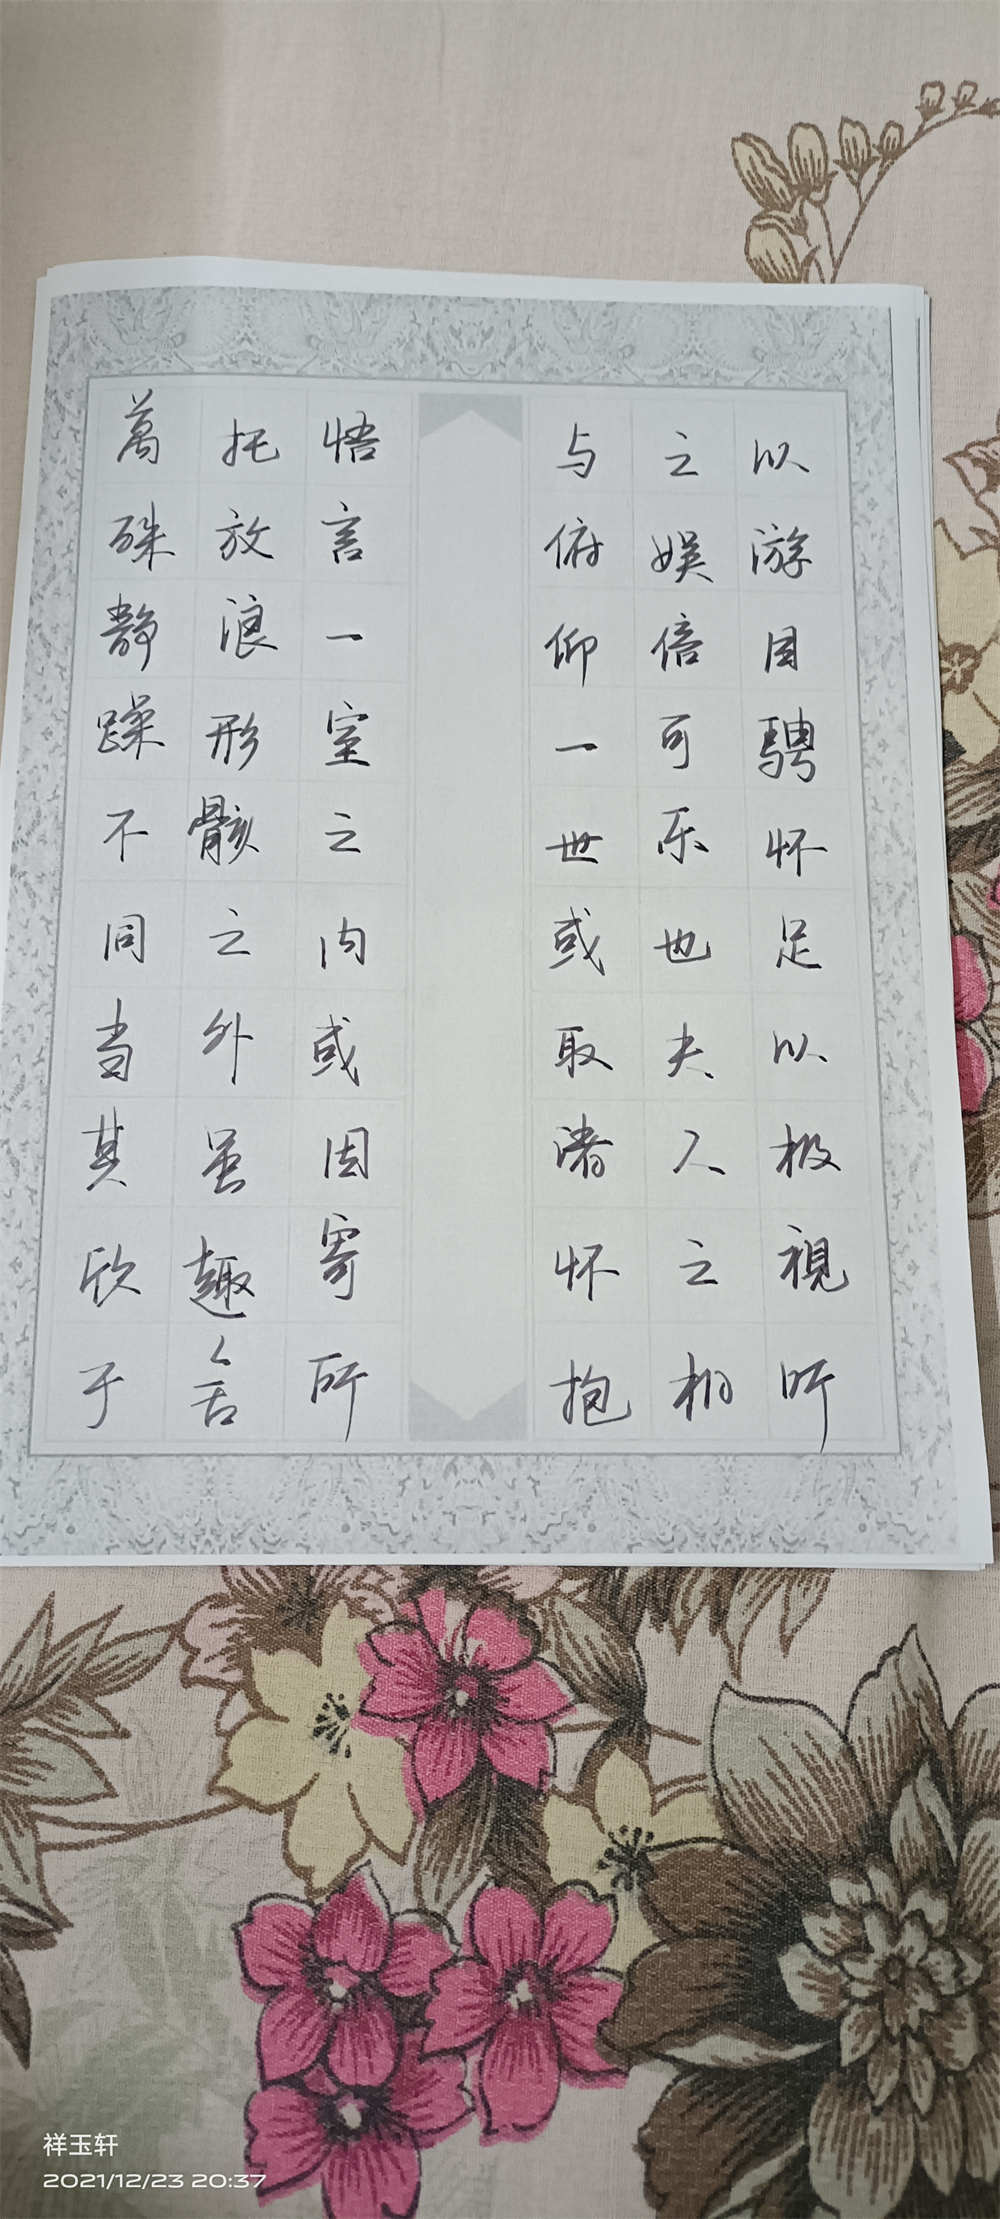 以游目聘怀足以极視听
之娱倍可乐也夫人之相
与俯仰一世或取诸怀抱
悟言一室之内或因寄所
托放浪形骸之外虽趣舍
萬殊静躁不同当其欣于
祥玉轩
2021/12/23 20:37